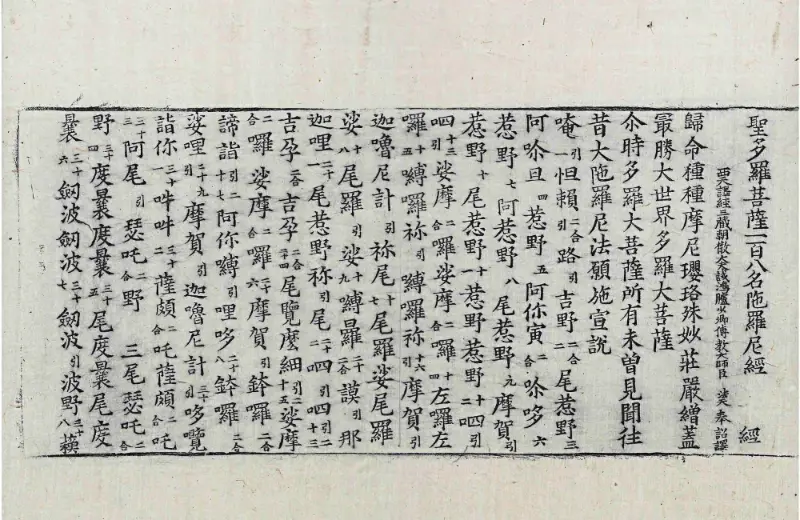 聖多羅菩薩一百八名陁羅尼經　經
西天譯經三藏朝散大夫試鴻臚少卿傳教大師臣 法天 奉 詔譯
歸命種種摩尼瓔珞殊妙莊嚴繒蓋
最勝大世界多羅大菩薩
尒時多羅大菩薩所有未曾見聞往
昔大陁羅尼法願施宣說
唵引一怛賴引二合路引吉野二合二尾惹野三
阿唅旦四惹野五阿你寅二合唅哆六
惹野七阿惹野八尾惹野九摩賀引
惹野十尾惹野十一惹野惹野十二呬引
呬十三娑摩二合囉娑摩二合囉十四左囉左
囉十五縛囉祢引縛囉祢引十六摩賀引
迦嚕尼計引祢尾十七尾囉娑尾囉
娑十八尾羅引娑十九縛曩二合謨二十那
迦哩二十一尾惹野祢引尾二十二呬引呬引二十三
吉孕二合吉孕二合二十四尾覽麽細引二十五娑摩
二合囉娑摩二合囉二十六摩賀引鉢囉二合
諦詣引二十七阿你縛引哩哆二十八鉢囉二合
娑哩二十九摩賀引迦嚕尼計引三十哆覽
詣你三十一吽吽三十二薩頗二合吒薩頗二合吒
三十三阿尾引瑟吒二合野 三尾瑟吒二合
野三十四度曩度曩三十五尾度曩尾度
曩三十六劒波劒波三十七劒波引波野三十八